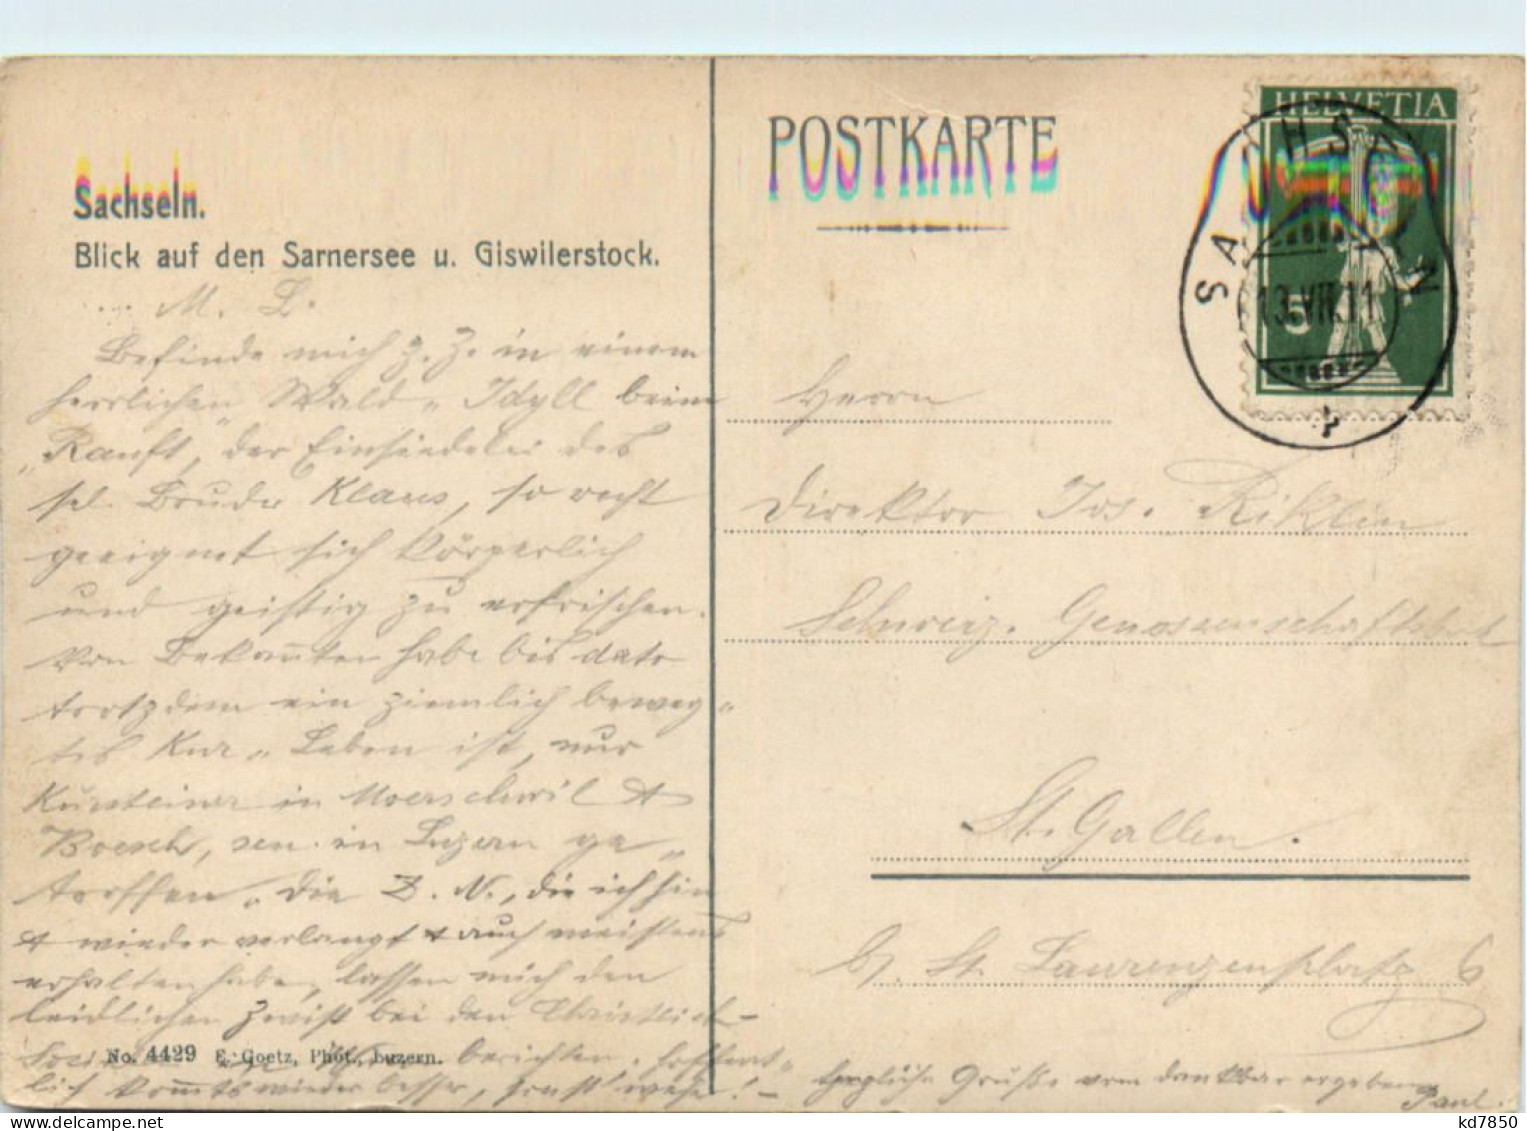 Sachseln.
Blick auf den Sarnersee u. Giswilerstock.
M. L.
Befinde mich z. Z. in einem
herrlichen Wald-Idyll beim
„Ranft", der Einsiedelei des
sel. Bruder Klaus, so recht
geeignet sich körperlich
und geistig zu erfrischen.
Von Bekannten habe bis dato
trotzdem ein ziemlich beweg-
tes Kur-Leben ist, nur
Kürsteiner in Moerschwil &
Boesch, sen. in Luzern ge-
troffen. Die Z. N., die ich hin
& wieder verlangt & auch meistens
erhalten habe, lassen mich den
leidlichen Zwist bei den Christlich-
berichten. Hoffent-
lich kommts wieder besser, sonst wehe! -
No. 4429 E. Goetz, Phot., Luzern.
POSTKARTE
HELVETIA
5
SACHSELN
13.VII.11
Herrn
Direktor Jos. Riklin
Schweiz. Genossenschaftsbk
St. Gallen.
St. Laurenzenplatz 6
Herzliche Grüße vom dankbar ergebenen
Paul.
kd7850